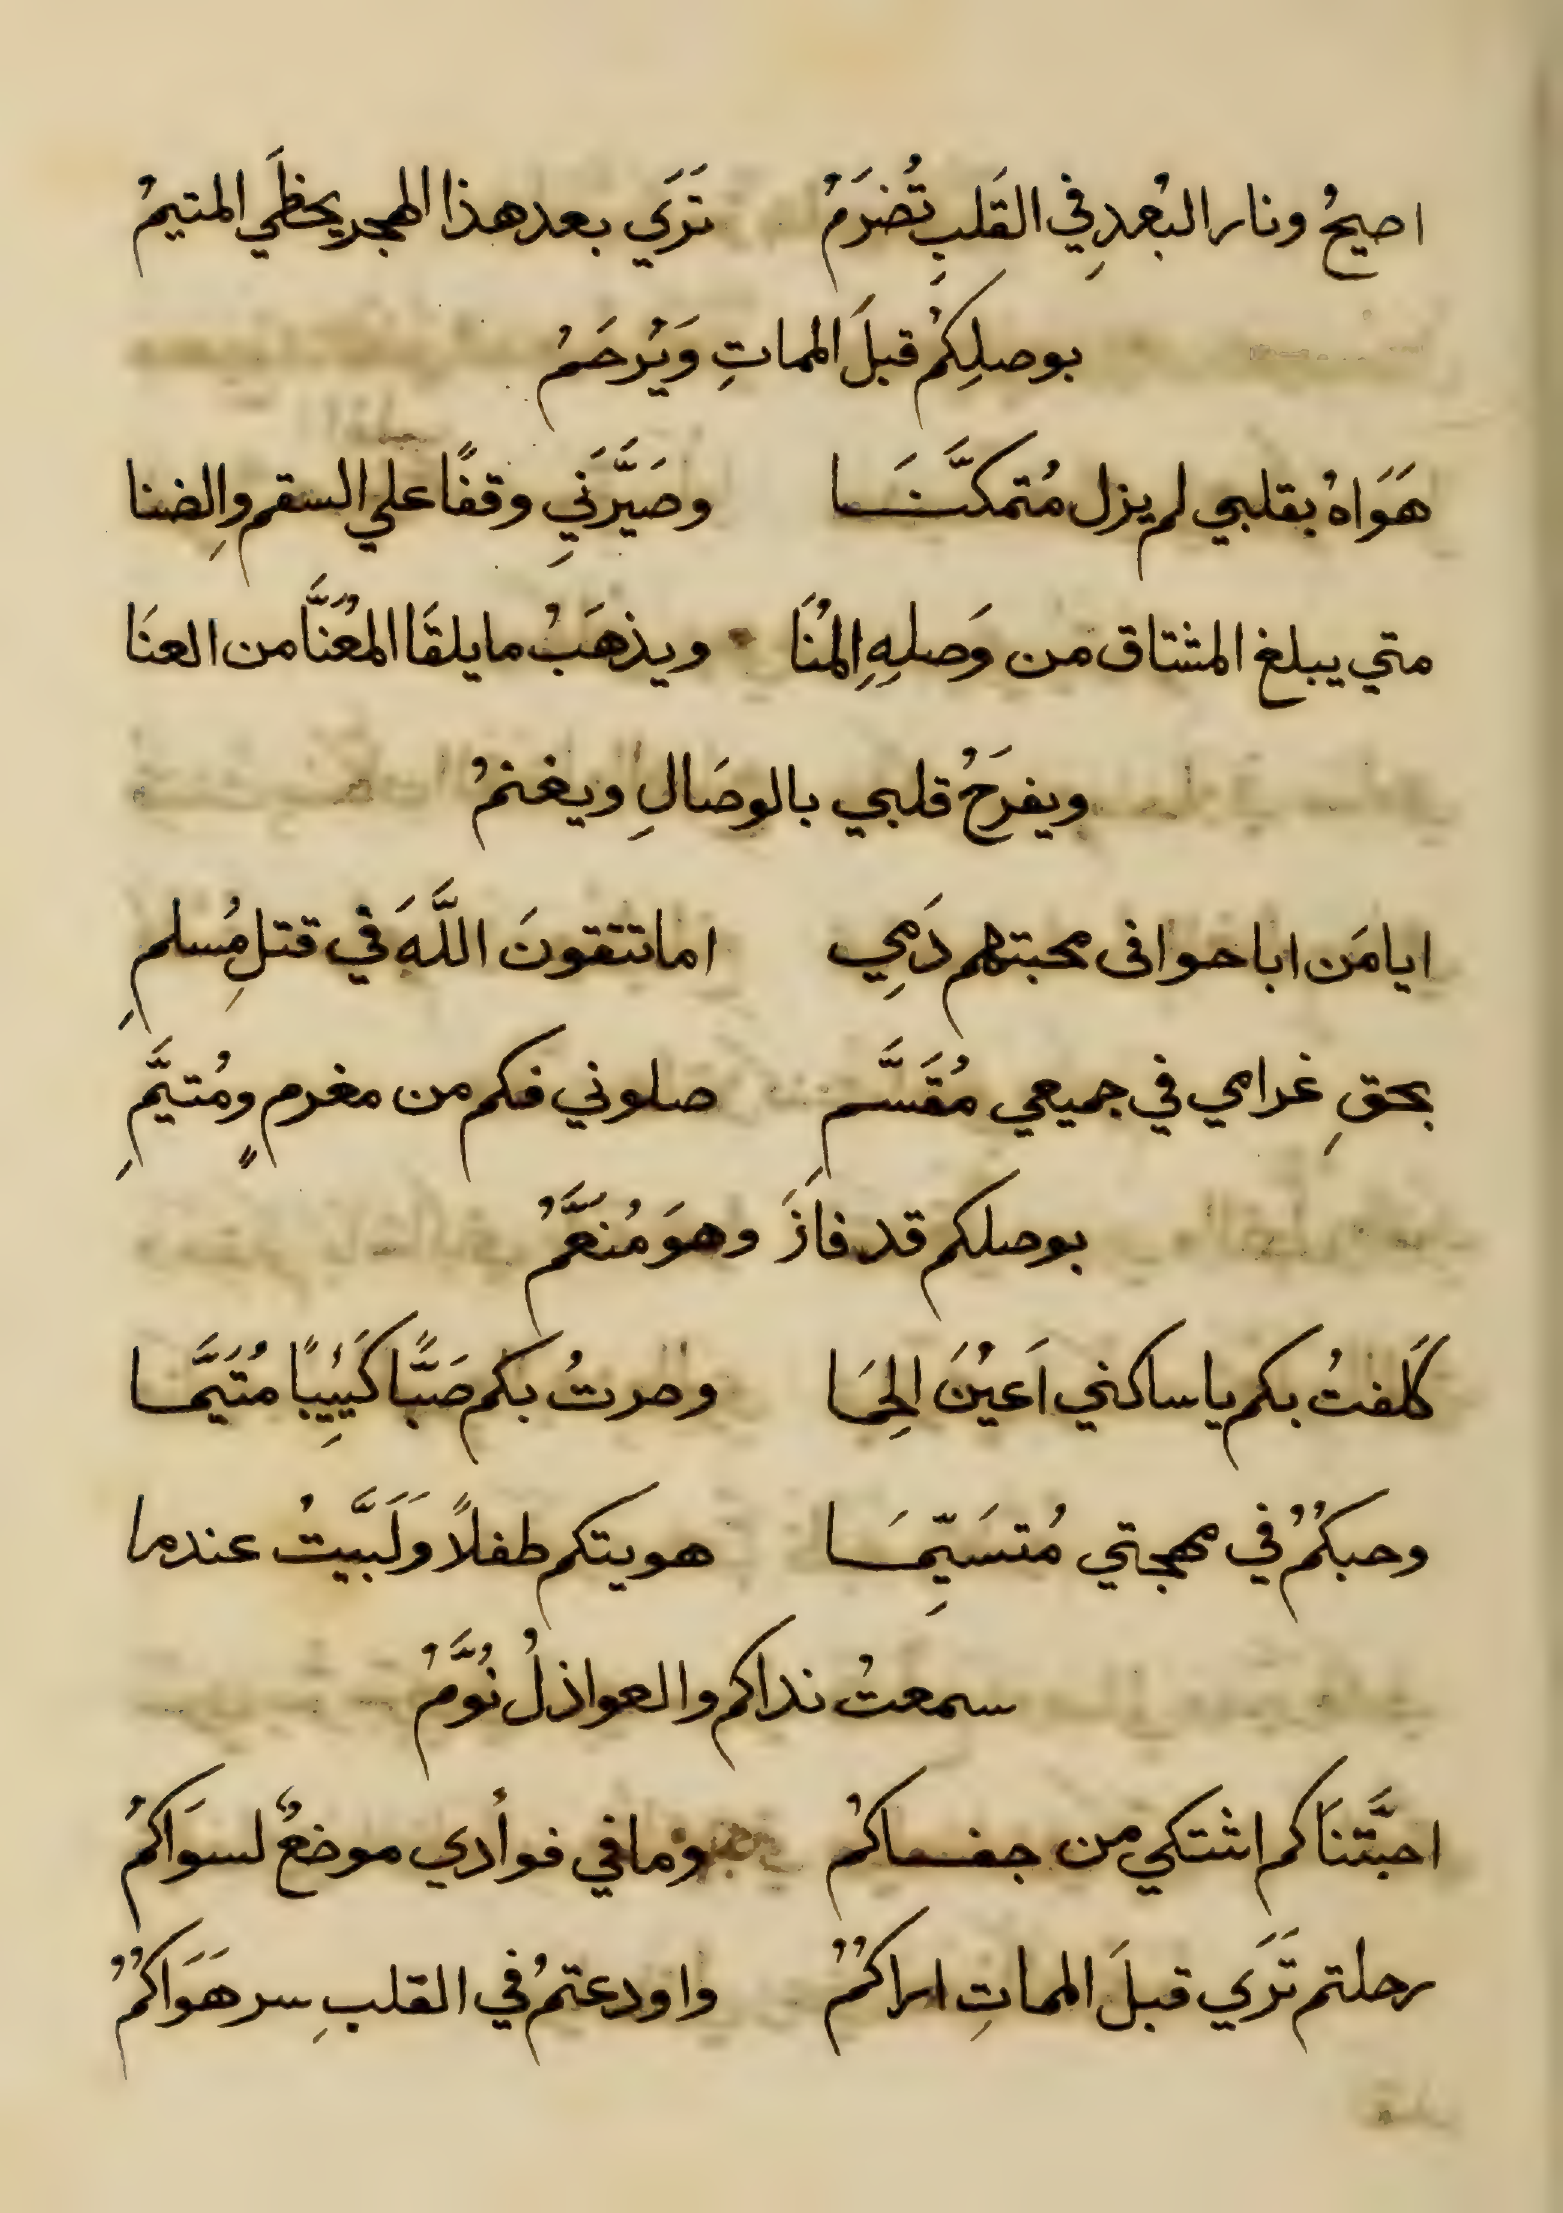 اصيحُ ونار البُعدِ في القَلبِ تُضرَمُ تَرَي بعد هذا الهجر يحظَي المتيمُ
بوصلِكُم قبلَ المماتِ وَيُرحَمُ
هَوَاهُ بقلبي لم يزل مُتمكَّنَا وصَيَّرَنِي وقفًا علي السقم والِضنا
متي يبلغ المشتاق من وَصلِهِ المُنَا ويذهَبُ ما يلقَا المُعَنَّا من العنَا
ويفرَحُ قلبي بالوصَالِ ويغنمُ
ايا مَن اباحوا فى محبتهم دَمِي اما تتقونَ اللَّهَ في قتلِ مُسلمِ
بحقِ غرامي في جميعي مُقَسَّمِ صلوني فكم من مغرمٍ ومُتيَّمِ
بوصلكم قد فازَ وهوَ مُنعَّمُ
كَلفتُ بكم يا ساكني اَعيُنَ الِحمَا وصرتُ بكم صَبًّا كَئِيبًا مُتَيَّمَا
وحبكُمُ في مهجتي مُتسَيِّمَا هويتكم طفلاً وَلَبَّيتُ عندما
سمعتُ نداكم والعواذلُ نُوَّمُ
احبَّتنَا كم اشتكي من جفاكُم وما في فوأدي موضعٌ لسوَاكُمُ
رحلتم تَرَي قبلَ المماتِ اراكُمُ واودعتمُ في القلبِ سر هَوَاكُمُ